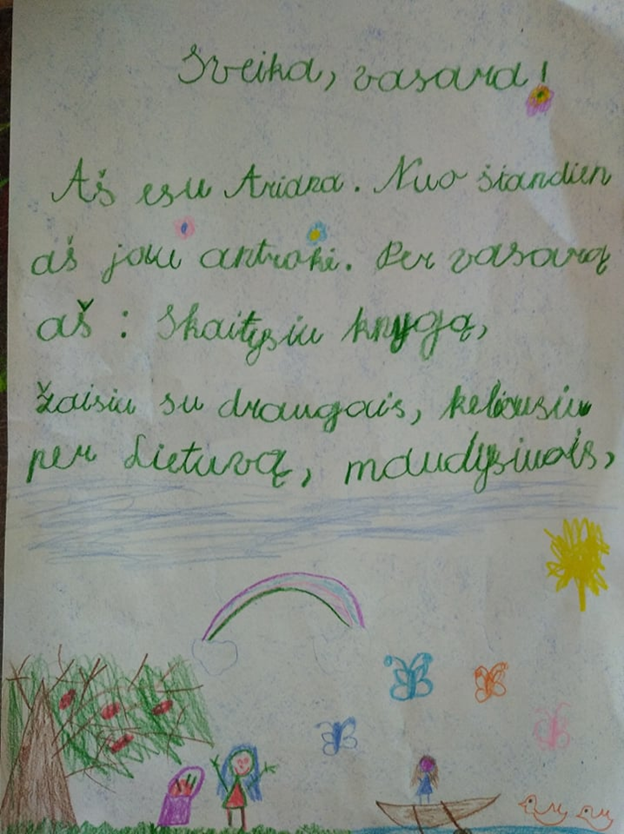 Sveika, vasara!
Aš esu Ariana. Nuo šiandien
aš jau antrokė. Per vasarą
aš: Skaitysiu knygą,
žaisiu su draugais, keliausiu
per Lietuvą, maudysiuois,